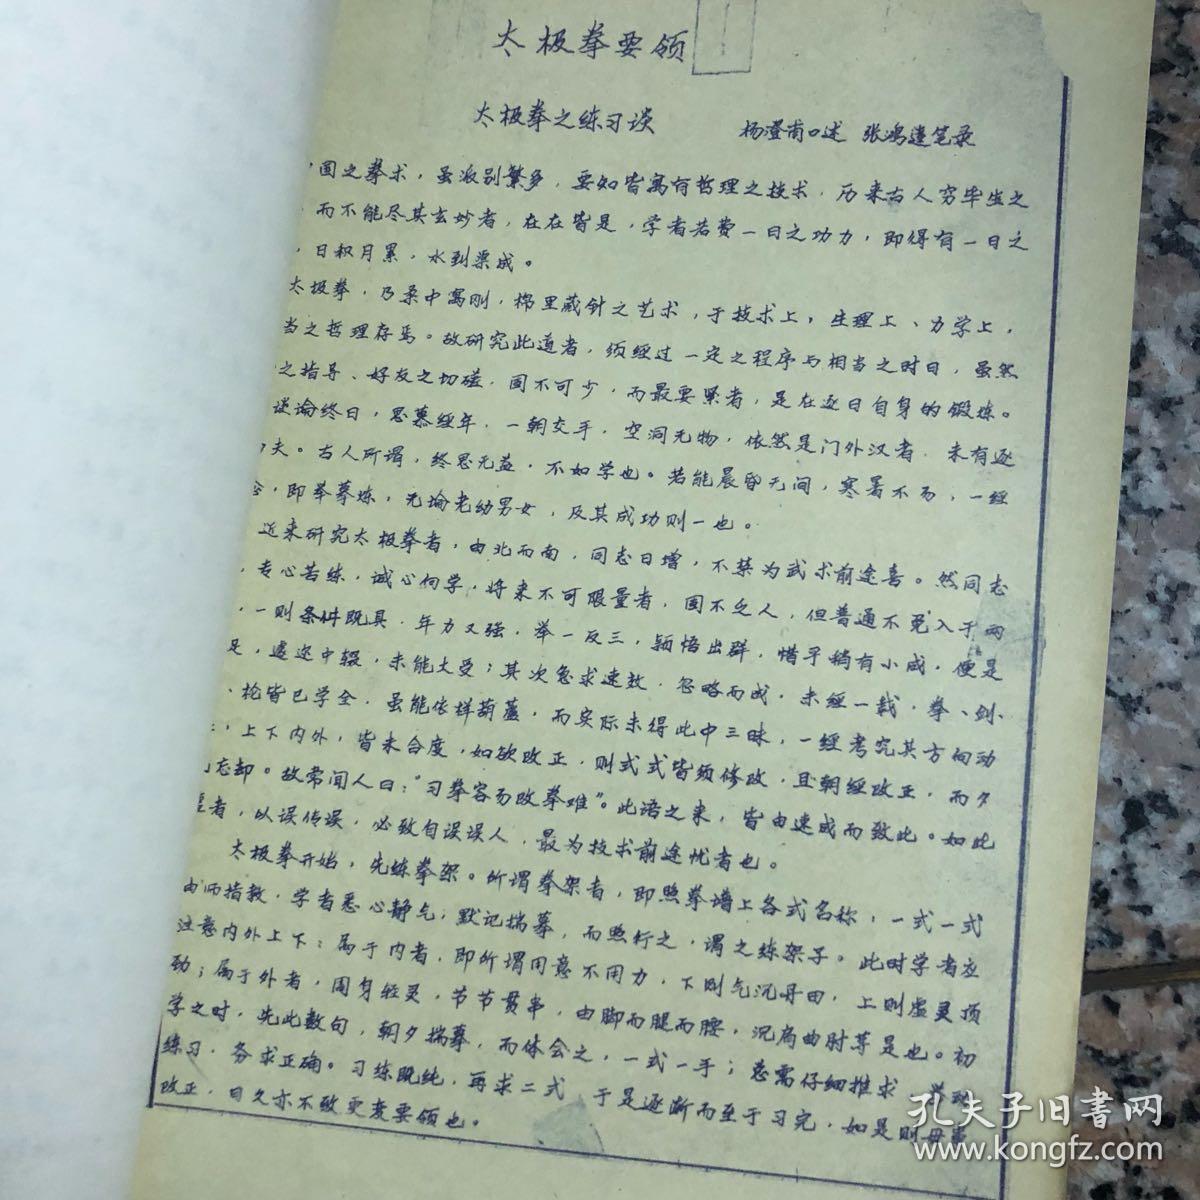 太极拳要领
太极拳之练习谈 杨澄甫口述 张鸿逵笔录
国之拳术，虽派别繁多，要知皆寓有哲理之技术，历来古人穷毕生之
而不能尽其玄妙者，在在皆是，学者若费一日之功力，即得有一日之
日积月累，水到渠成。
太极拳，乃柔中寓刚，棉里藏针之艺术，于技术上，生理上、力学上，
当之哲理存焉。故研究此道者，须经过一定之程序与相当之时日，虽然
之指导、好友之切磋，固不可少，而最要紧者，是在逐日自身的锻炼。
谈论终日，思慕经年，一朝交手，空洞无物，依然是门外汉者，未有逐
夫。古人所谓，终思无益，不如学也。若能晨昏无间，寒暑不易，一经
即举摹炼，无瑜老幼男女，及其成功则一也。
近来研究太极拳者，由北而南，同志日增，不禁为武术前途喜。然同志
专心苦练，诚心向学，将来不可限量者，固不乏人，但普通不免入于两
一则条件既具，年力又强，举一反三，颖悟出群，惜乎稍有小成，便是
足，遽迩中辍，未能大受；其次急求速效，忽略而成，未经一载，拳、剑、
枪皆已学全，虽能依样葫蘆，而实际未得此中三昧，一经考究其方向动
上下内外，皆未合度，如欲改正，则式式皆须修改，且朝经改正，而夕
忘却。故常闻人曰："习拳容易改拳难"。此语之来，皆由速成而致此。如此
者，以误传误，必致自误误人，最为技术前途忧者也。
太极拳开始，先练拳架。所谓拳架者，即照拳谱上各式名称，一式一式
由师指教，学者悉心静气，默记揣摹，而照行之，谓之练架子。此时学者应
注意内外上下：属于内者，即所谓用意不用力，下则气沉丹田，上则虚灵顶
劲；属于外者，周身轻灵，节节贯串，由脚而腿而腰，沉肩曲肘等是也。初
学之时，先此数句，朝夕揣摹，而体会之，一式一手；总需仔细推求 举动
练习，务求正确。习练既纯，再求二式 于是逐渐而至于习完，如是则毋事
改正，日久亦不致更变要领也。
孔夫子旧书网
www.kongfz.com